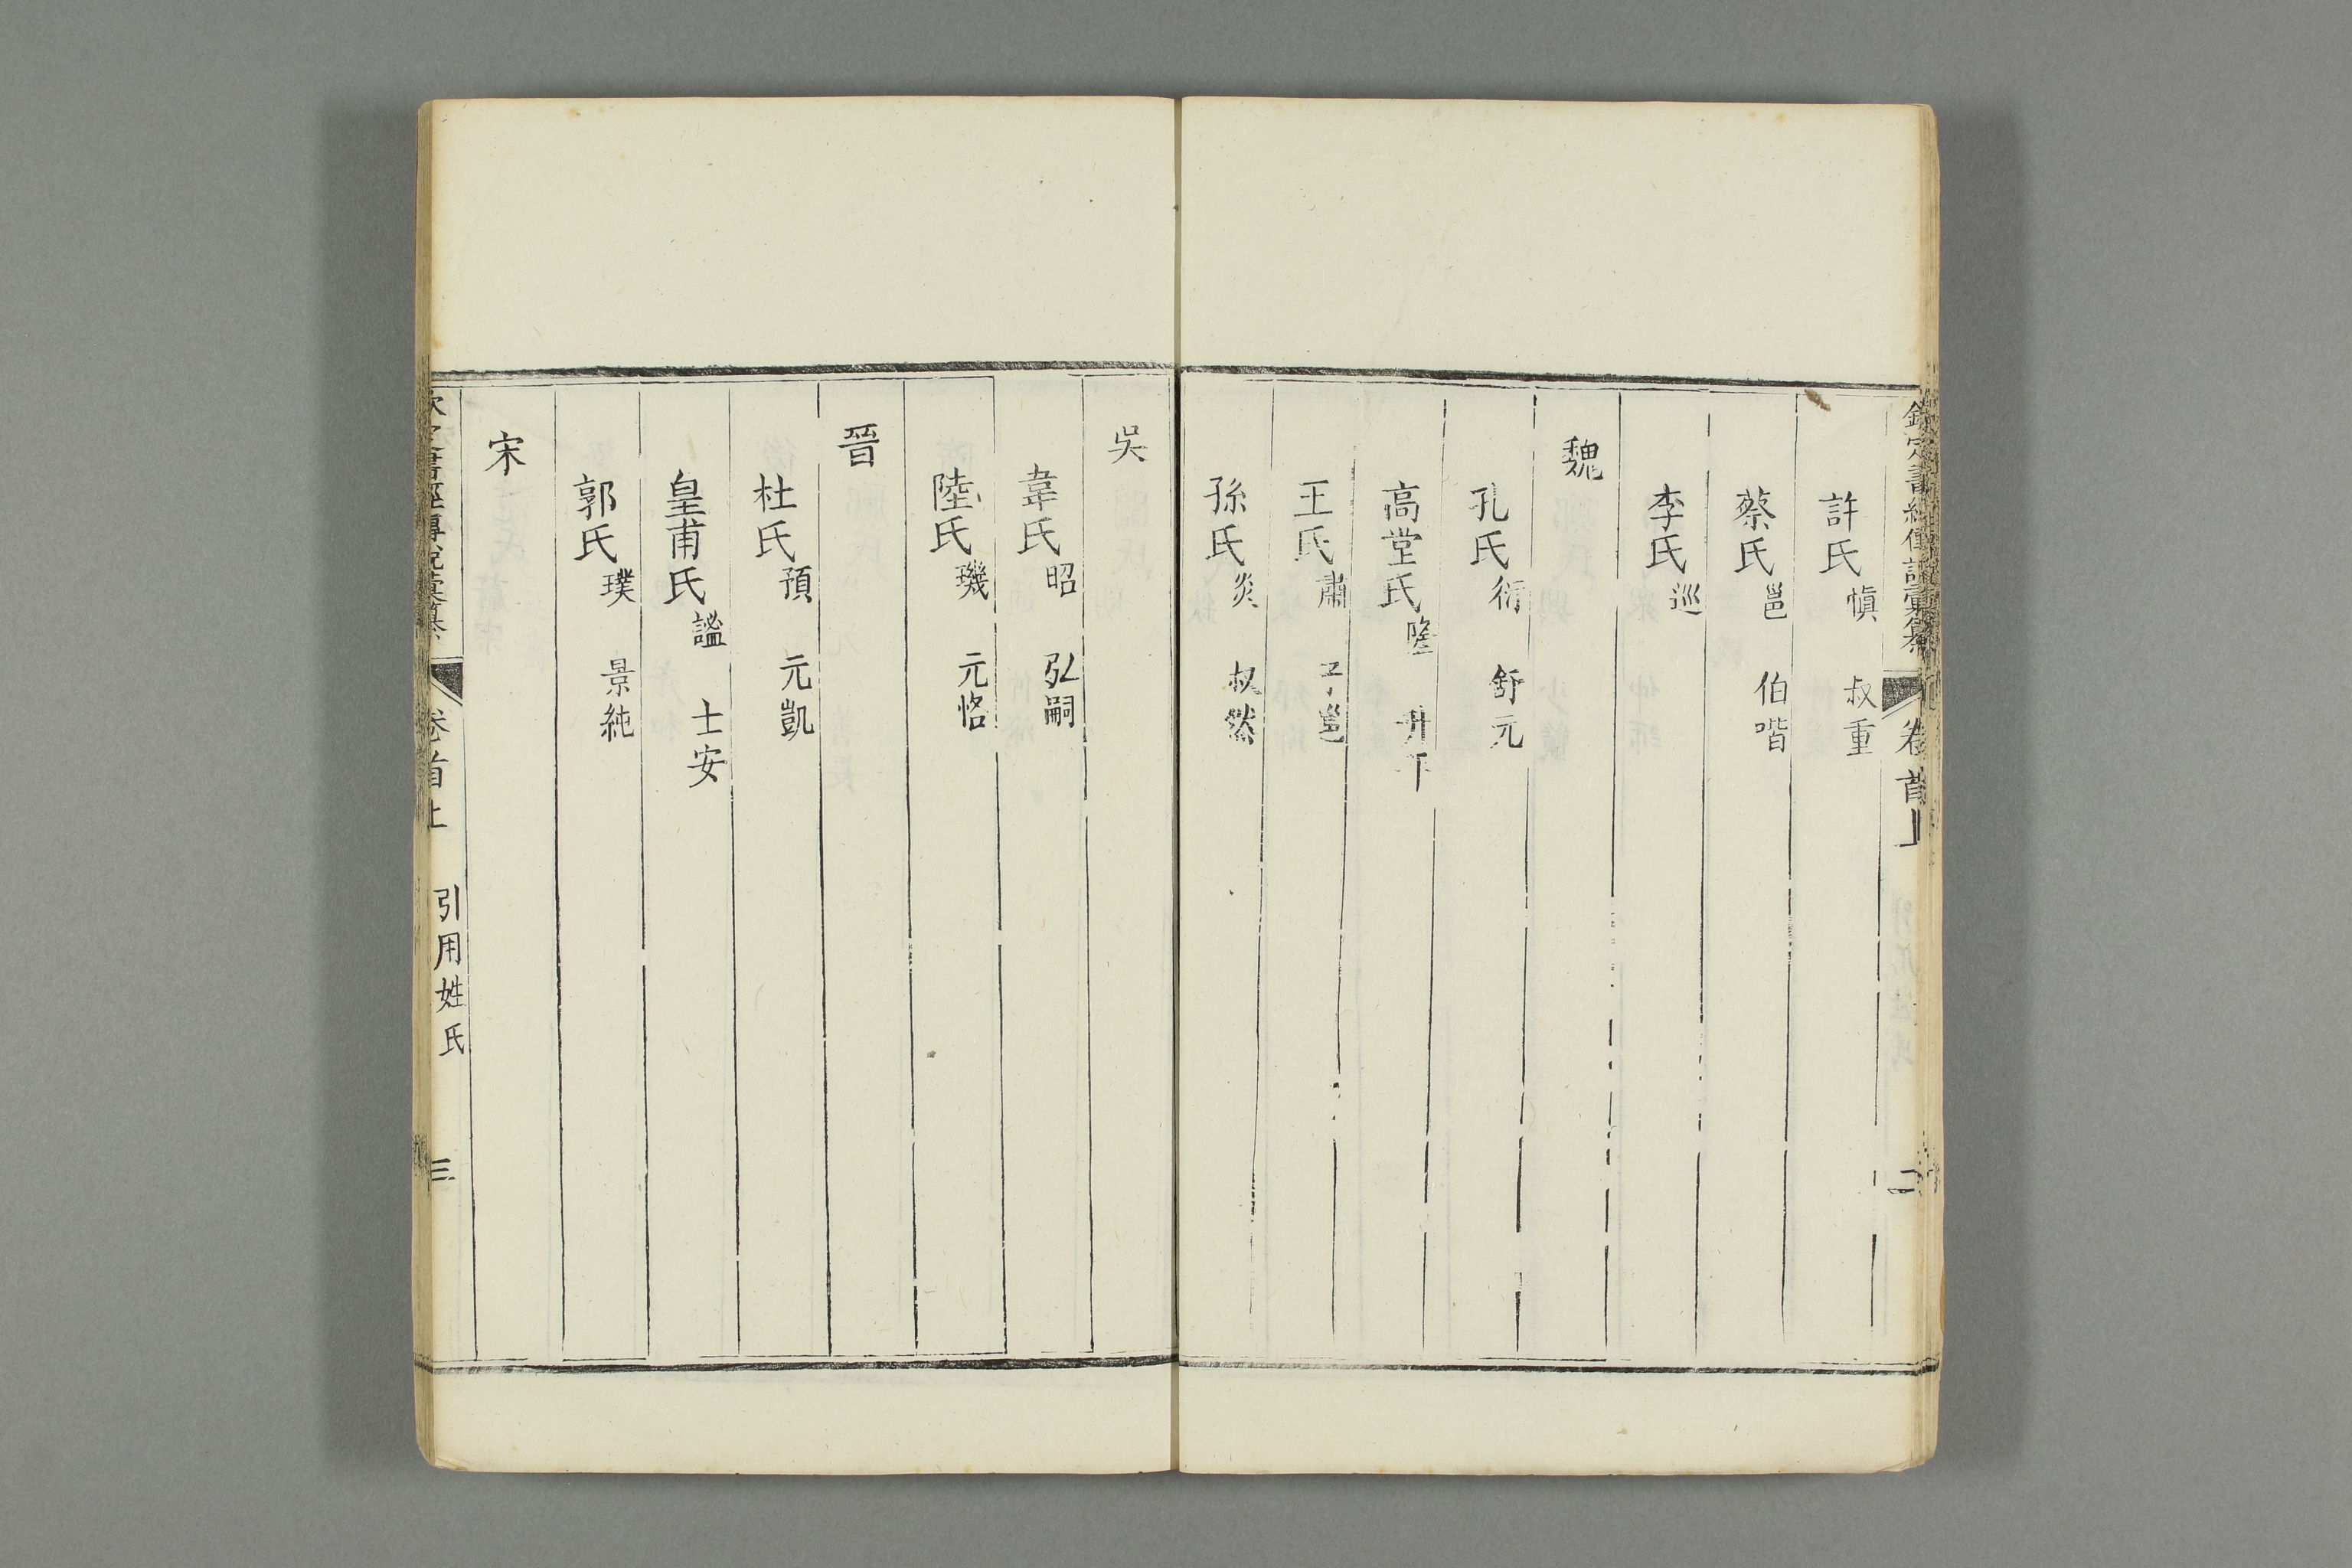 欽定書經傳說彙纂 卷首上 二
許氏慎 叔重
蔡氏邕 伯喈
李氏巡
魏
孔氏衍 舒元
高堂氏隆 升平
王氏肅 子邕
孫氏炎 叔然
吳
韋氏昭 弘嗣
陸氏璣 元恪
晉
杜氏預 元凱
皇甫氏謐 士安
郭氏璞 景純
宋
欽定書經傳說彙纂 卷首上 引用姓氏 三